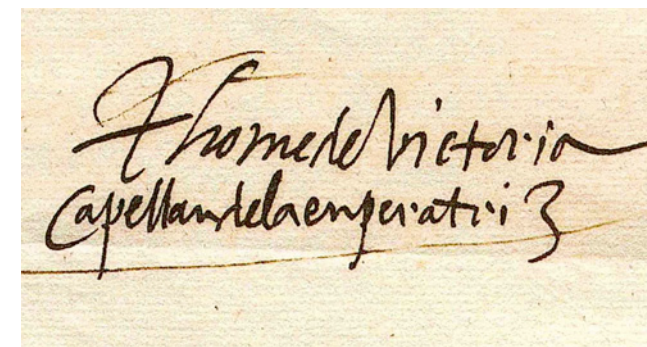 Thome de Victoria
Capellan dela enperatriz